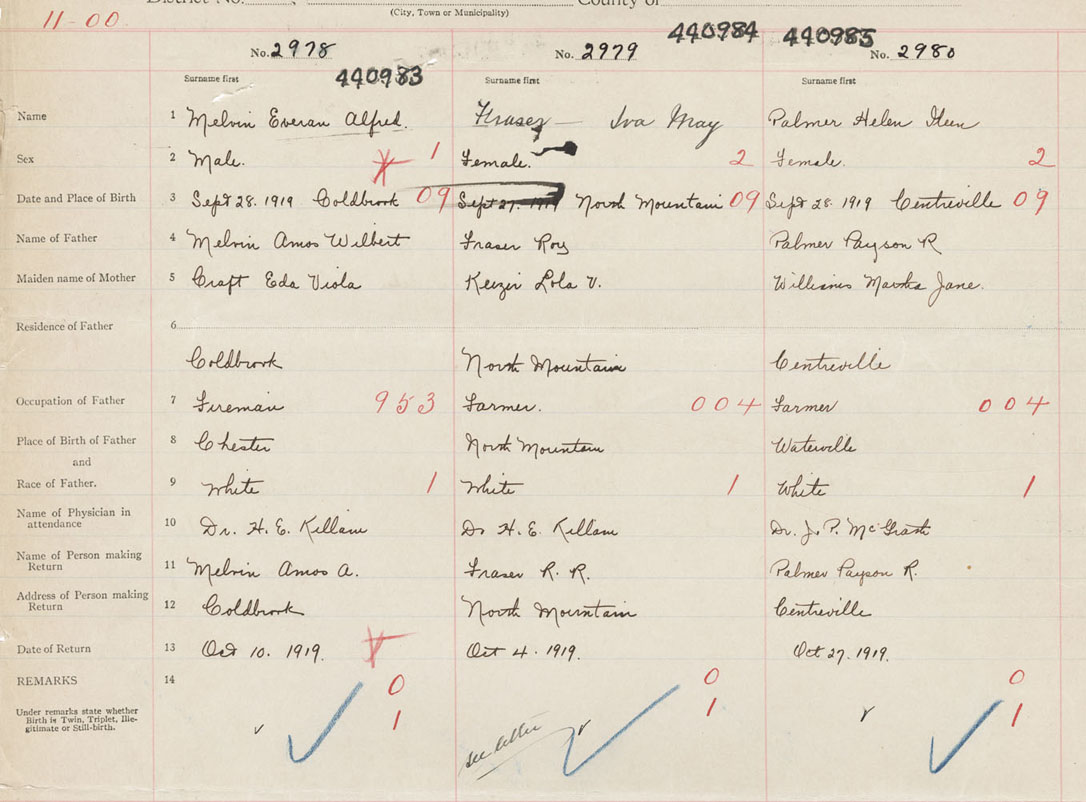 District No. County of
(City, Town or Municipality)
11-00
440984 440985
No. 2978 No. 2979 No. 2980
440983
Surname first Surname first Surname first
Name 1 Melvin Everan Alfred. Fraser — Iva May Palmer Helen
Sex 2 Male. 1 Female. 2 Female. 2
Date and Place of Birth 3 Sept 28. 1919 Coldbrook 09 Sept 27. 1919 North Mountain 09 Sept 28. 1919 Centreville 09
Name of Father 4 Melvin Amos Wilbert Fraser Roy Palmer Payson R
Maiden name of Mother 5 Craft Eda Viola Keizer Lola V. Williams Martha Jane.
Residence of Father 6
Coldbrook North Mountain Centreville
Occupation of Father 7 Fireman 953 Farmer. 004 Farmer 004
Place of Birth of Father 8 Chester North Mountain Waterville
and
Race of Father. 9 White 1 White 1 White 1
Name of Physician in
attendance 10 Dr. H. E. Killam Dr H. E. Killam Dr. J. P. McGrath
Name of Person making
Return 11 Melvin Amos A. Fraser R. R. Palmer Payson R.
Address of Person making
Return 12 Coldbrook North Mountain Centreville
Date of Return 13 Oct 10. 1919. Oct 4. 1919. Oct 27. 1919.
REMARKS 14 0 0 0
Under remarks state whether
Birth is Twin, Triplet, Ille-
gitimate or Still-birth. 1 1 1
see letter